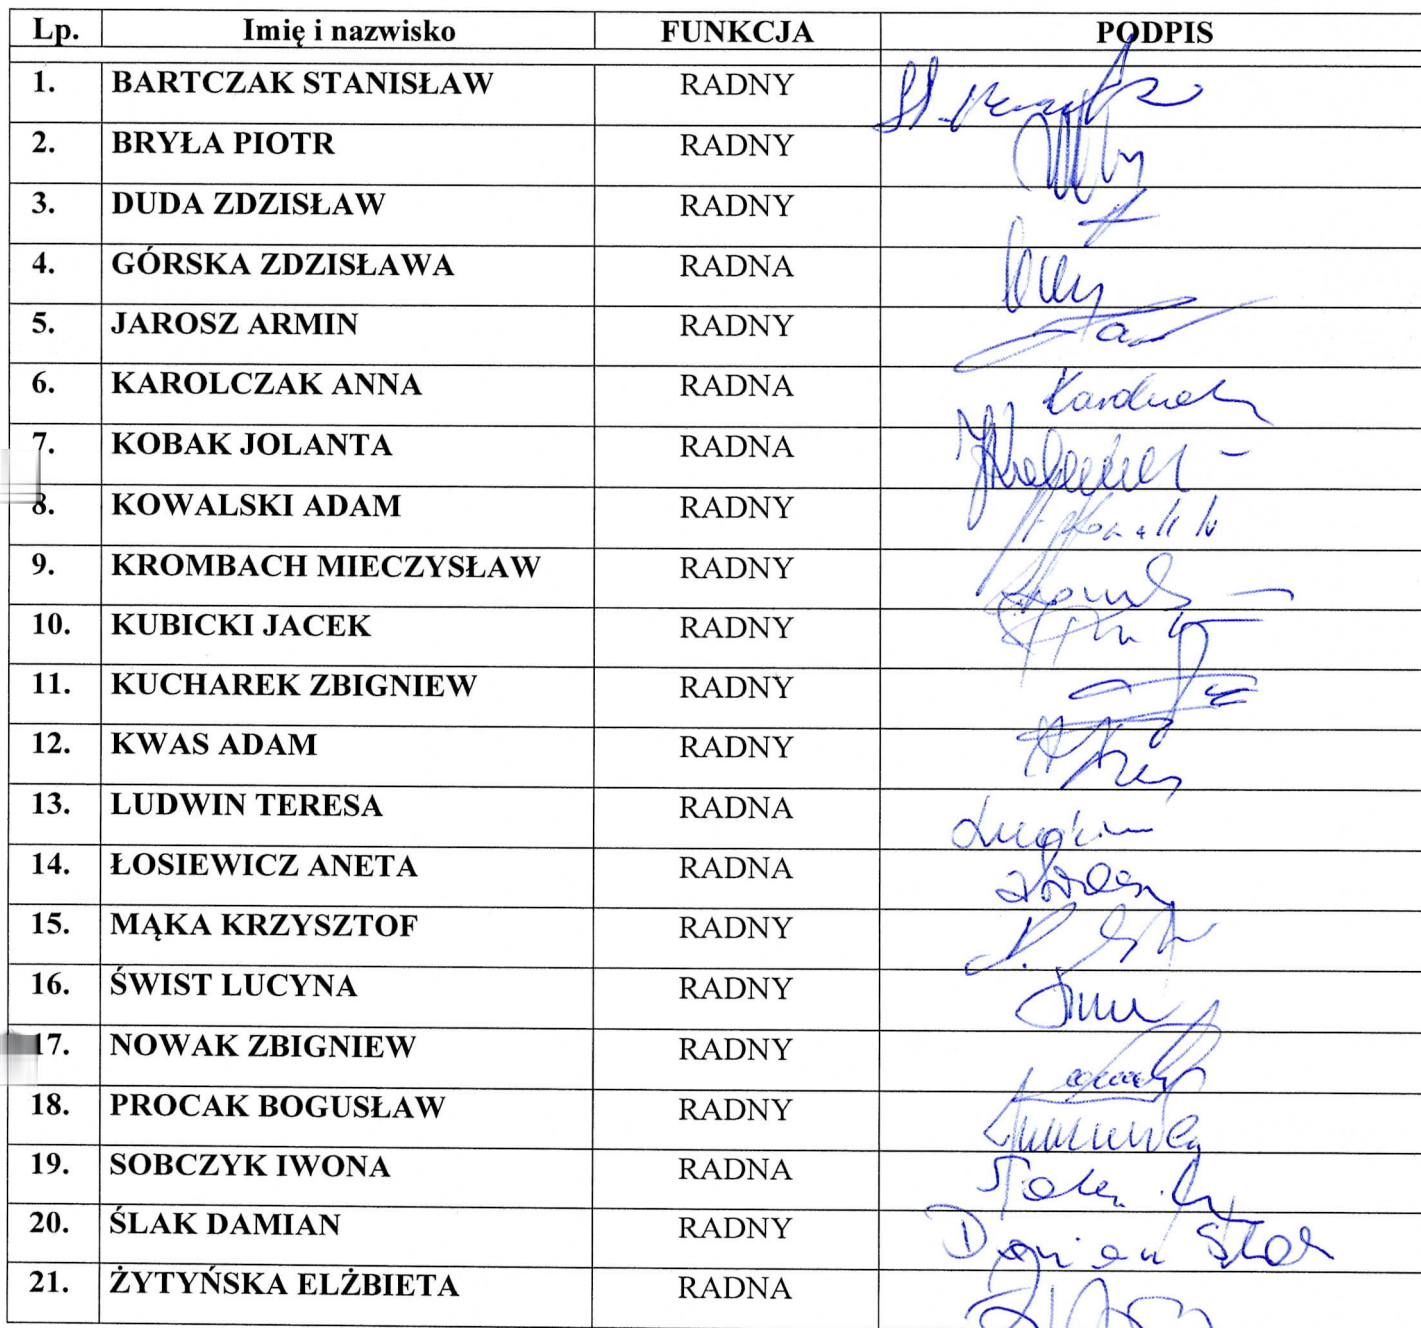 Lp. Imię i nazwisko FUNKCJA PODPIS
1. BARTCZAK STANISŁAW RADNY
2. BRYŁA PIOTR RADNY
3. DUDA ZDZISŁAW RADNY
4. GÓRSKA ZDZISŁAWA RADNA
5. JAROSZ ARMIN RADNY
6. KAROLCZAK ANNA RADNA
7. KOBAK JOLANTA RADNA
8. KOWALSKI ADAM RADNY
9. KROMBACH MIECZYSŁAW RADNY
10. KUBICKI JACEK RADNY
11. KUCHAREK ZBIGNIEW RADNY
12. KWAS ADAM RADNY
13. LUDWIN TERESA RADNA
14. ŁOSIEWICZ ANETA RADNA
15. MĄKA KRZYSZTOF RADNY
16. ŚWIST LUCYNA RADNY
17. NOWAK ZBIGNIEW RADNY
18. PROCAK BOGUSŁAW RADNY
19. SOBCZYK IWONA RADNA
20. ŚLAK DAMIAN RADNY Damian Ślak
21. ŻYTYŃSKA ELŻBIETA RADNA